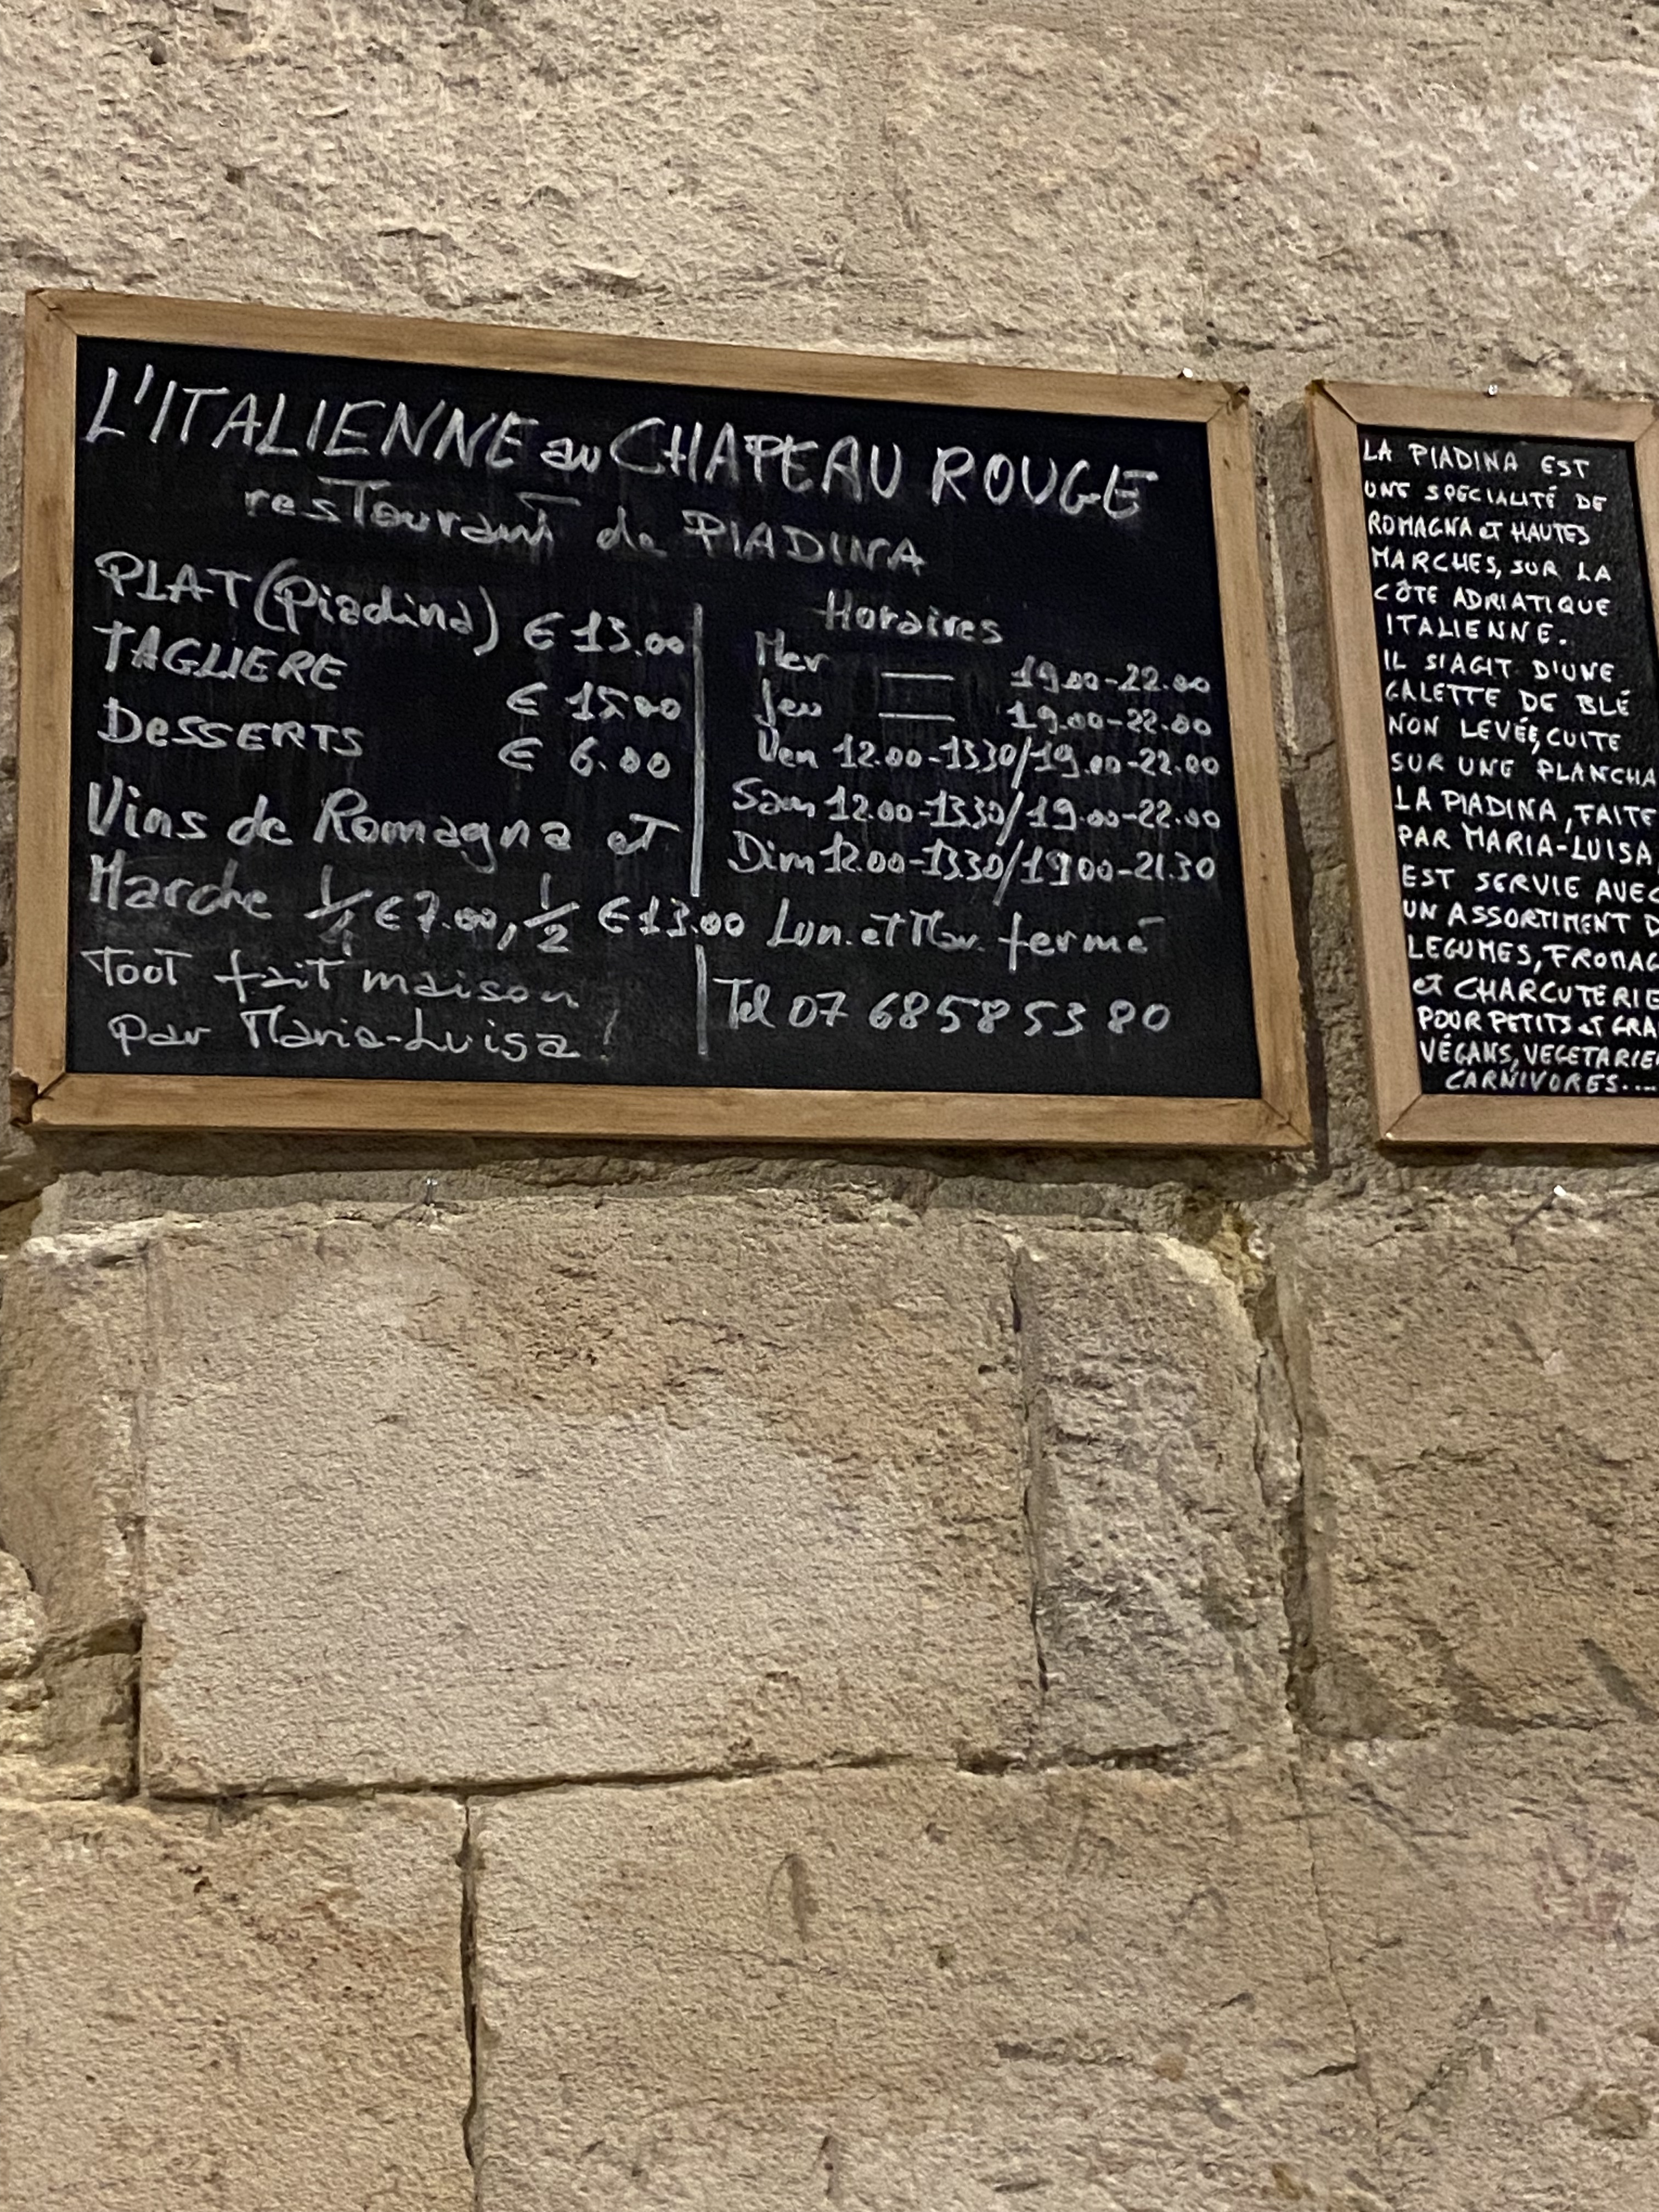 L'ITALIENNE au CHAPEAU ROUGE
restaurant de PIADINA
PLAT (Piadina) € 13.00
TAGLIERE € 15.00
DESSERTS € 6.00
Vins de Romagna et
Marche 1/4 € 7.00, 1/2 € 13.00
Tout fait maison
par Maria-Luisa!
Horaires
Mer — 19.00-22.00
Jeu — 19.00-22.00
Ven 12.00-13.30/19.00-22.00
Sam 12.00-13.30/19.00-22.00
Dim 12.00-13.30/19.00-21.30
Lun. et Mar. fermé
Tel 07 68 58 53 80
LA PIADINA EST
UNE SPECIALITÉ DE
ROMAGNA et HAUTES
MARCHES, SUR LA
CÔTE ADRIATIQUE
ITALIENNE.
IL S'AGIT D'UNE
GALETTE DE BLÉ
NON LEVÉE, CUITE
SUR UNE PLANCHA
LA PIADINA, FAITE
PAR MARIA-LUISA,
EST SERVIE AVEC
UN ASSORTIMENT D
LEGUMES, FROMAG
et CHARCUTERIE
POUR PETITS et GRA
VÉGANS, VEGETARIE
CARNIVORES....